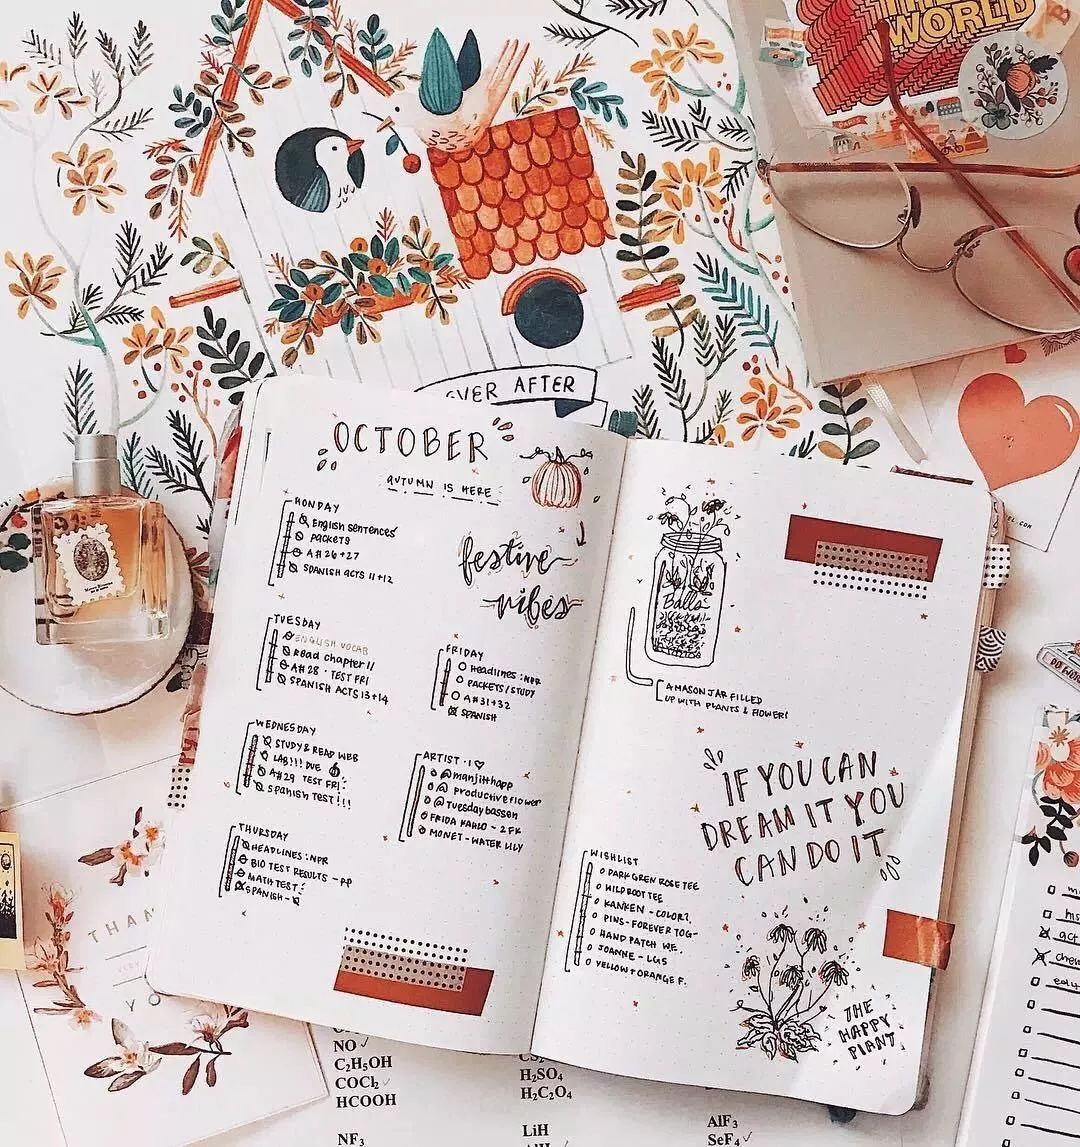 THE
WORLD
PARIS
EVER AFTER
OCTOBER
AUTUMN IS HERE
MONDAY
English sentences
packets
A# 26+27
SPANISH ACTS 11+12
festive
vibes
TUESDAY
ENGLISH VOCAB
Read chapter 11
A# 28 · TEST FRI
SPANISH ACTS 13+14
FRIDAY
Headlines: NPR
PACKETS/STUDY
A# 31+32
SPANISH
WEDNESDAY
STUDY & READ WEB
LAB!!! DUE
A# 29 TEST FRI
Spanish TEST!!!
ARTIST · I ♡
@manjitthapp
@ productiveflower
@Tuesdaybassen
FRIDA KAHLO - 2 FK
MONET - WATER LILY
THURSDAY
HEADLINES: NPR
BIO TEST RESULTS - PP
MATH TEST!
SPANISH -
Balls
A MASON JAR FILLED
UP WITH PLANTS & FLOWER!
IF YOU CAN
DREAM IT YOU
CAN DO IT
WISHLIST
DARK GREN ROSE TEE
WILD ROOT TEE
KANKEN - COLOR?
PINS - FOREVER TOG-
HAND PATCH WE.
JOANNE - LGS
YELLOW + ORANGE F.
THE
HAPPY
PLANT
THAN
VERY
YO
DO MORE
act
chem
NO ✓
C₂H₅OH
COCl₂ ✓
HCOOH
NF₃
CS₂
H₂SO₄
H₂C₂O₄
LiH
AlF₃
SeF₄ ✓